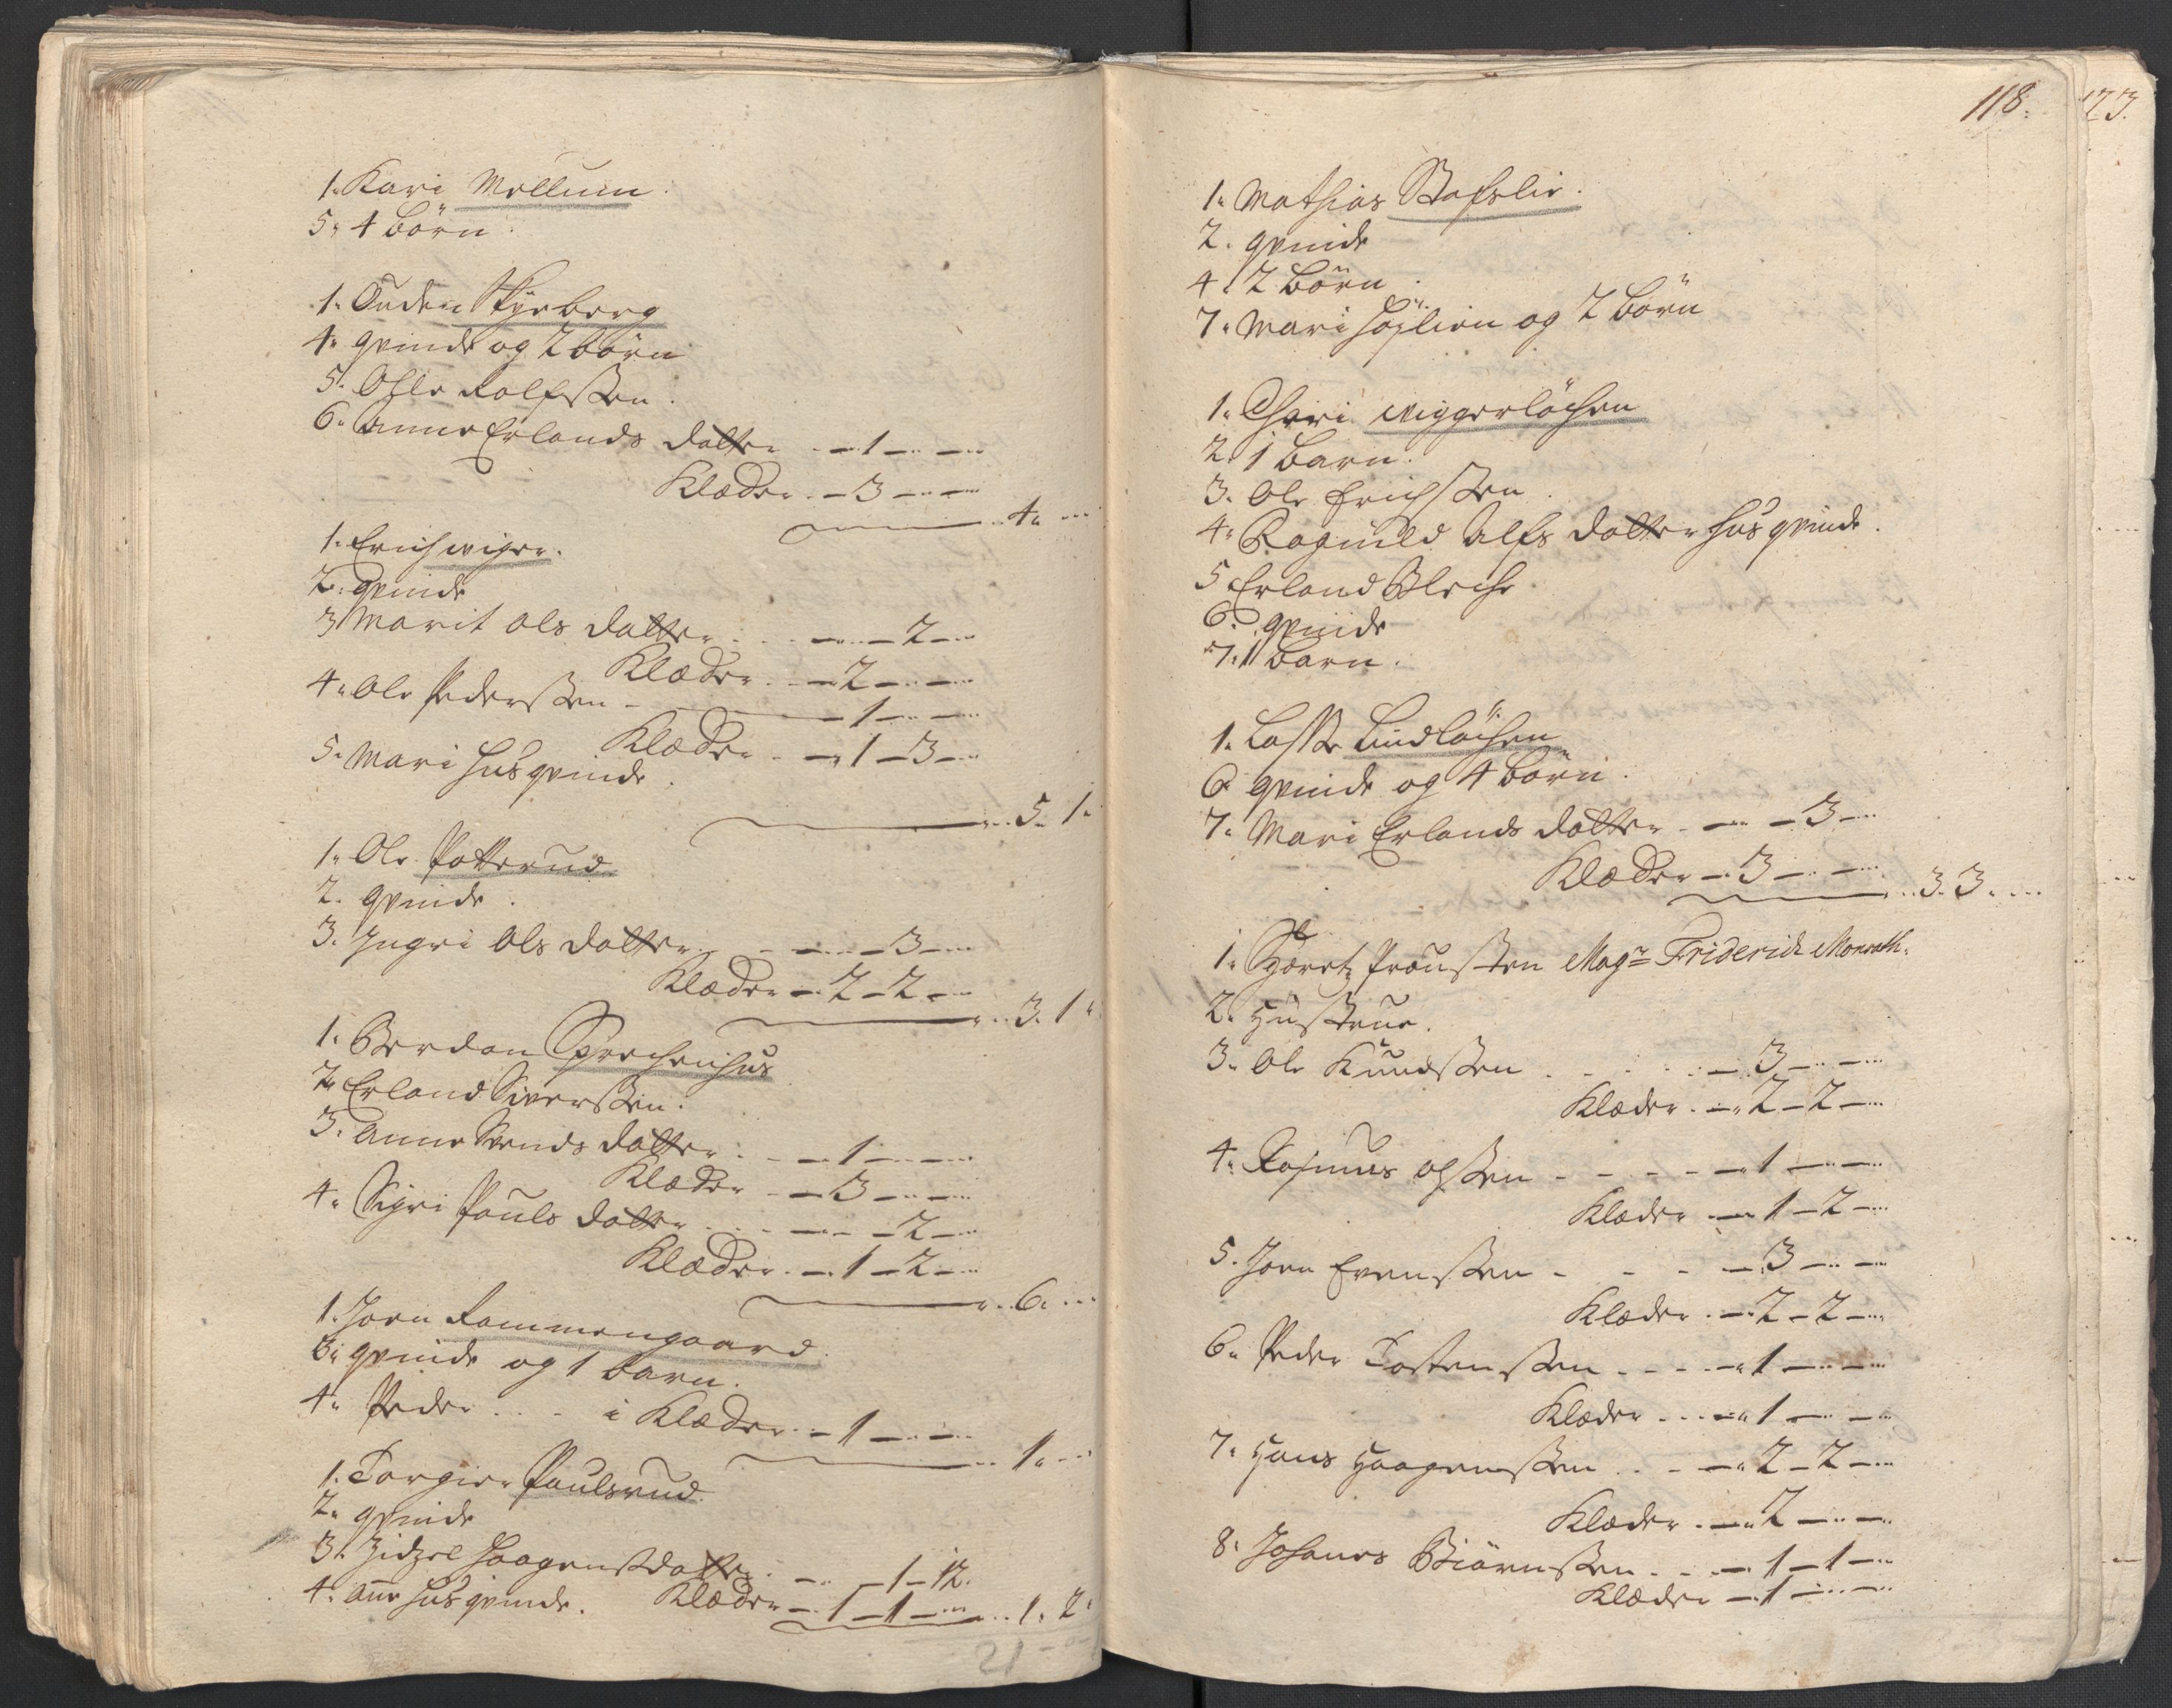 1. Kari Mellum.
5. 4 Börn.
1. Anden Skyeberg
4. qvinde og 2 Börn
5. Ohle Rolfssen.
6. Anne Erlands datter - 1 -
Klæder - 3 -
4.
1. Erich wiger.
2. qvinde
3 Marit Ols datter - 2 -
Klæder - 2 -
4. Ole Pederssen - 1 -
Klæder - 1 - 3 -
5. Mari huusqvinde.
5. 1.
1. Ole Potterud
2. qvinde.
3. Ingri Ols datter - 3 -
Klæder - 2 - 2 -
3. 1.
1. Berdon Sprechenhus
2. Erland Siverssen.
3. Anne Svends datter - 1 -
Klæder - 3 -
4. Sigri Pouls datter - 2 -
Klæder - 1 - 2 -
6.
1. Joen Rammengaard.
3. qvinde og 1 barn.
4. Peder . . . i Klæder - 1 -
1.
1. Torgier Poulsrud.
2. qvinde
3. Zidzel Haagenssdatter - 1 - 12.
4. Ane husqvinde. Klæder - 1 - 1 - 1. 2.
21 -
118.
123.
1. Mathias
2. qvinde
4. 2 Börn.
7. Mari og 2 Börn
1. wiggerlöchen
2. 1 Barn.
3. Ole Erichssen.
4. Ragnild Alfs datter husqvinde.
5 Erland
6. qvinde
7. 1 barn.
1. Lasse Lundlöchen
6. qvinde og 4 Börn.
7. Mari Erlands datter - 3 -
Klæder - 3 -
3. 3.
1. Proussten Magr Friderich Monrath.
2. Hustrue.
3. Ole Knudssen - 3 -
Klæder - 2 - 2 -
4. Rasmus Olssen - 1 -
Klæder - 1 - 2 -
5. Joen Evenssen - 3 -
Klæder - 2 - 2 -
6. Peder Tostenssen - 1 -
Klæder - 1 -
7. Hans Haagenssen - 2 - 2 -
Klæder - 2 -
8. Johanes Biörnssen - 1 - 1 -
Klæder - 1 -